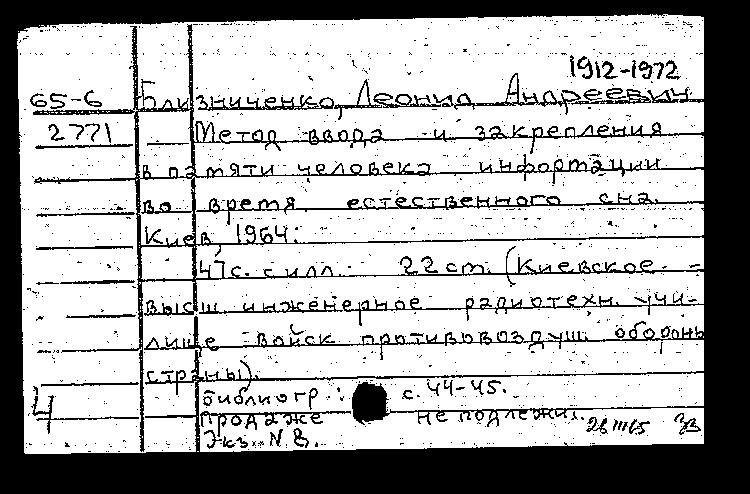 1912-1972
65-6 Близниченко, Леонид Андреевич
2771 Метод ввода и закрепления
в памяти человека информации
во время естественного сна.
Киев, 1964.
47 с. с илл. 22 cm. (Киевское
высш. инженерное радиотехн. учи-
лище войск противовоздуш. обороны
страны).
Библиогр.: с. 44-45.
4 Продаже не подлежит.
Экз. N 8. 28 III 65